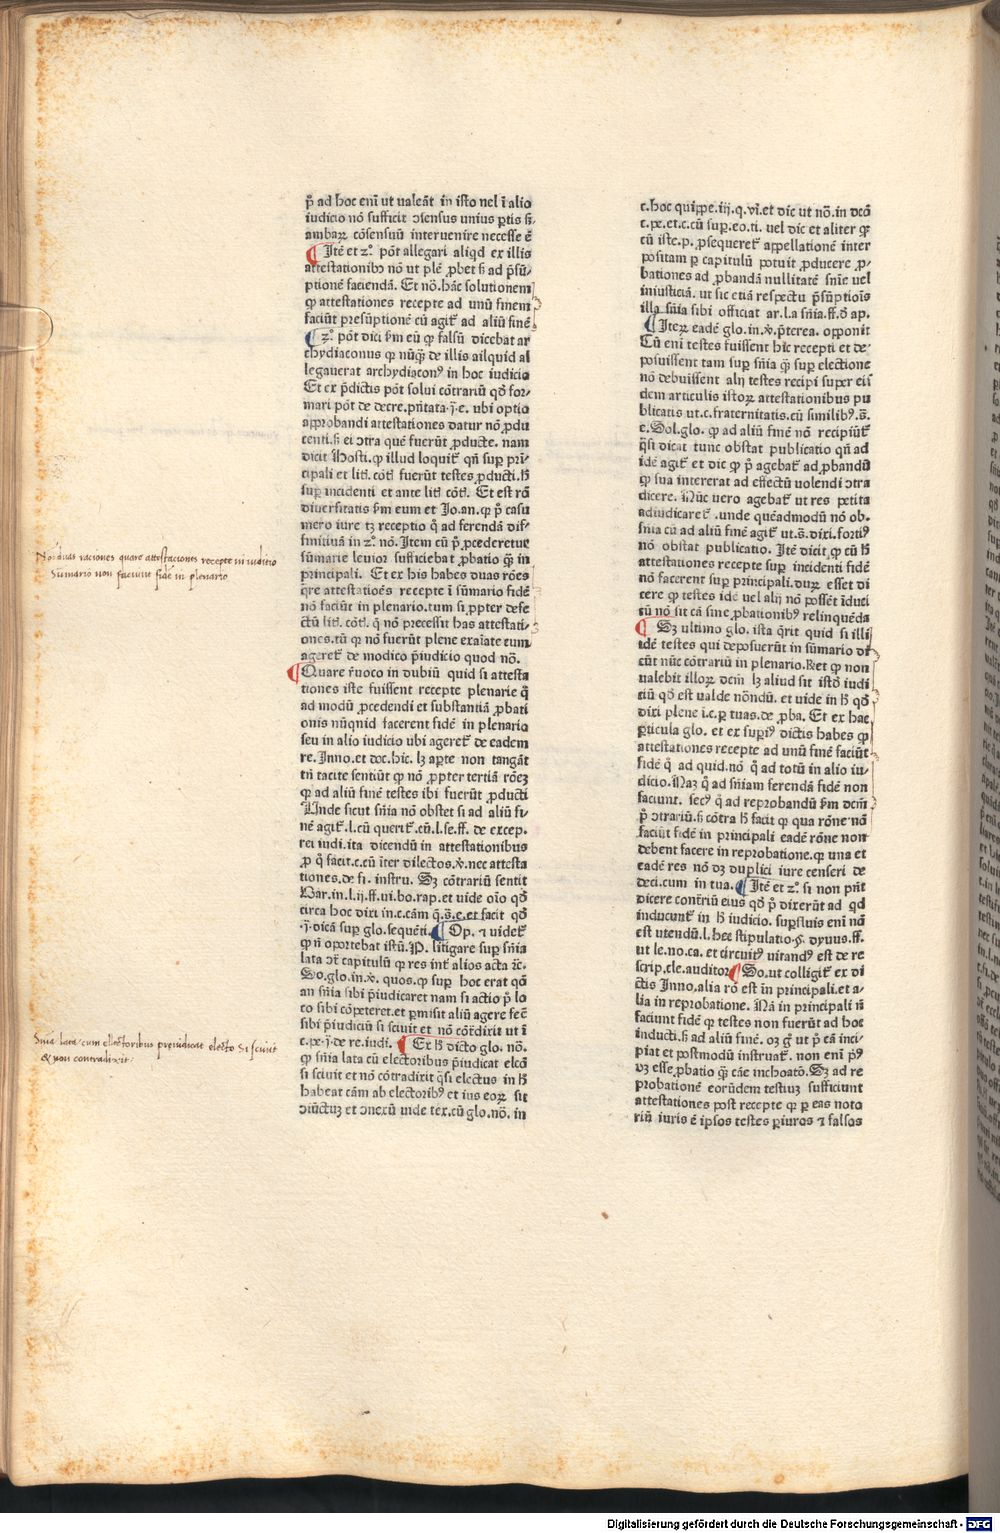 p̄ ad hoc enī ut ualeāt in isto uel ī alio
iudicio nō sufficit ɔsensus unius ꝑtis ß
ambaꝝ cōsensuū interuenire necesse ē
¶ Itē et 2º. pōt allegari aliqd ex illis
attestationibꝰ nō ut plē ꝓbet ß ad p̄sū/
ptionē faciendā. Et nō. hāc solutionem
ꝙ attestationes recepte ad unū finem
faciūt presūptionē cū agit̄ ad aliū finē
¶ 2º. pōt dici ẜm eū ꝙ falsū dicebat ar
chydiaconus ꝙ nūꝗ̄ de illis aliquid al
legauerat archydiaconꝰ in hoc iudicio
Et ex p̄dictis pōt solui cōtrariū qd̄ for/
mari pōt de decre. pn̄tata. j̄. e. ubi optio
approbandi attestationes datur nō ꝓdu
centi. ß ei ɔtra quē fuerūt ꝓducte. nam
dicit Hosti. ꝙ illud loquit̄ qn̄ sup prī/
cipali et lit̄. cōt̄. fuerūt testes ꝓducti. h̄
sup incidenti et ante lit̄. cōt̄. Et est rō
diuersitatis ẜm eum et Jo. an. ꝙ p̄ casu
mero iure tꝫ receptio q̄ ad ferendā dif/
finitiuā in 2º. nō. Item cū p̄ ꝓcederetur
sūmarie leuior sufficiebat ꝓbatio ꝗ̄ in
principali. Et ex his habes duas rōes
qre attestatiōes recepte ī sūmario fidē
nō faciūt in plenario. tum si ꝓpter defe
ctū lit̄. cōt̄. q̄ nō precessit has attestati/
ones. tū ꝙ nō fuerūt plene exaīate cum
ageret̄ de modico p̄iudicio quod nō.
¶ Quare r̄uoco in dubiū quid si attesta
tiones iste fuissent recepte plenarie q̄
ad modū ꝓcedendi et substantiā ꝓbati
onis nūqnid facerent fidē in plenario
seu in alio iudicio ubi ageret̄ de eadem
re. Inno. et doc. hic. lꝫ aꝑte non tangāt
tn̄ tacite sentiūt ꝙ nō ꝓpter tertiā rōeꝫ
ꝙ ad aliū finē testes ibi fuerūt ꝓducti
Unde sicut sn̄ia nō obstet si ad aliū fi/
nē agit̄. l. cū querit̄. cū. l. se. ff. de excep.
rei iudi. ita dicendū in attestationibus
ꝓ q̄ facit. c. cū īter dilectos. ꝟ. nec attesta
tiones. de fi. instru. Sꝫ cōtrariū sentit
Bar. in. l. ij. ff. ui. bo. rap. et uide oīo qd̄
circa hoc dixi in. c. cām q̄. s̄. e. et facit qd̄
j̄. dicā sup glo. sequēti. ¶ Op. ⁊ uidet̄
ꝙ n̄ oportebat istū. P. litigare sup sn̄ia
lata ɔt̄ capitulū ꝙ res int̄ alios acta ⁊c.
So. glo. in. ꝟ. quos. ꝙ sup hoc erat qō
an sn̄ia sibi p̄iudicaret nam si actio p̄ lo
co sibi cōpeteret. et ꝑmisit aliū agere fec̄
sibi p̄iudiciū si sciuit et nō cōt̄dixit ut ī
c. pe. j̄. de re. iudi. ¶ Ex h̄ dicto glo. nō.
ꝙ sn̄ia lata cū electoribus p̄iudicat elcō
si sciuit et nō cōtradixit qsi electus in h̄
habeat cām ab electoribꝰ et ius eoꝝ sit
ɔiūctuꝫ et ɔnexū uide tex. cū glo. nō. in
c. hoc quippe. iij. q. vi. et dic ut nō. in dcā
c. pe. et. c. cū sup. eo. ti. uel dic et aliter ꝙ
cū iste. p. ꝓsequeret̄ appellationē inter
positam ꝑ capitulū potuit ꝓducere ꝓ/
bationes ad ꝓbandā nullitatē sn̄ie uel
iniusticiā. ut sic etiā respectu p̄sūptiois
illa sn̄ia sibi officiat ar. l. a sn̄ia. ff. d̄ ap.
¶ Iteꝝ eadē glo. in. ꝟ. p̄terea. opponit
Cū enī testes fuissent hic recepti et de/
posuissent tam sup sn̄ia ꝗ̄ sup electione
nō debuissent alij testes recipi super eis
dem articulis istoꝝ attestationibus pu
blicatis ut. c. fraternitatis. cū similibꝰ. s̄.
e. Sol. glo. ꝙ ad aliū finē nō recipiūt̄
qsi dicat tunc obstat publicatio qn̄ ad
idē agit̄ et dic ꝙ p̄ agebat̄ ad ꝓbandū
ꝙ sua intererat ad effectū uolendi ɔtra
dicere. Nūc uero agebat̄ ut res petita
adiudicaret̄. unde quēadmodū nō ob.
sn̄ia cū ad aliū finē agit̄ ut. s̄. dixi. fortiꝰ
nō obstat publicatio. Itē dicit ꝙ cū h̄
attestationes recepte sup incidenti fidē
nō facerent sup principali. duꝝ esset di
cere ꝙ testes idē uel alij nō possēt īduci
cū nō sit cā sine ꝓbationibꝰ relinquēda
¶ Sꝫ ultimo glo. ista q̄rit quid si illi
idē testes qui deposuerūt in sūmario di
cūt nūc cōtrariū in plenario. Ret ꝙ non
ualebit illoꝝ dcm̄ lꝫ aliud sit istō iudi
ciū qd̄ est ualde nōndū. et uide in h̄ qd̄
dixi plene i. c. ꝑ tuas. de ꝓba. Et ex hac
ꝑticula glo. et ex supiꝰ dictis habes ꝙ
attestationes recepte ad unū finē faciūt
fidē q̄ ad quid. nō q̄ ad totū in alio iu/
dicio. Naꝫ q̄ ad sn̄iam ferendā fidē non
faciunt. secꝰ q̄ ad reprobandū ẜm dcm̄
p̄ ɔtrariū. ß cōtra h̄ facit ꝙ qua rōne nō
faciūt fidē in principali eadē rōne non
debent facere in reprobatione. ꝙ una et
eadē res nō dꝫ duplici iure censeri de
deci. cum in tua. ¶ Itē et 2º. si non pn̄t
dicere contr̄iū eius qd̄ p̄ dixerūt ad qd
inducunt̄ in h̄ iudicio. supfluis enī nō
est utendū. l. hec stipulatio. §. dyuus. ff.
ut le. no. ca. et circuitꝰ uitandꝰ est de re
scrip. c. le. auditor ¶ So. ut colligit̄ ex di
ctis Inno. alia rō est in principali. et a/
lia in reprobatione. Nā in principali n̄
faciunt fidē ꝙ testes non fuerūt ad hoc
inducti. ß ad aliū finē. oꝫ g̊ ut p̄ cā inci/
piat et postmodū instruat̄. non enī pꝰ
dꝫ esse ꝓbatio ꝗ̄ cāe inchoatō. Sꝫ ad re
probationē eorūdem testiuꝫ sufficiunt
attestationes post recepte ꝙ ꝑ eas noto
riū iuris ē ipsos testes ꝑiuros ⁊ falsos
Not̄ duas raciones quare attestaciones recepte in iuditio
Sūmario non faciunt fidē in plenario
Snīa lata cum ellectoribus preiudicat electo Si sciuit
& non contradixit
Digitalisierung gefördert durch die Deutsche Forschungsgemeinschaft - DFG